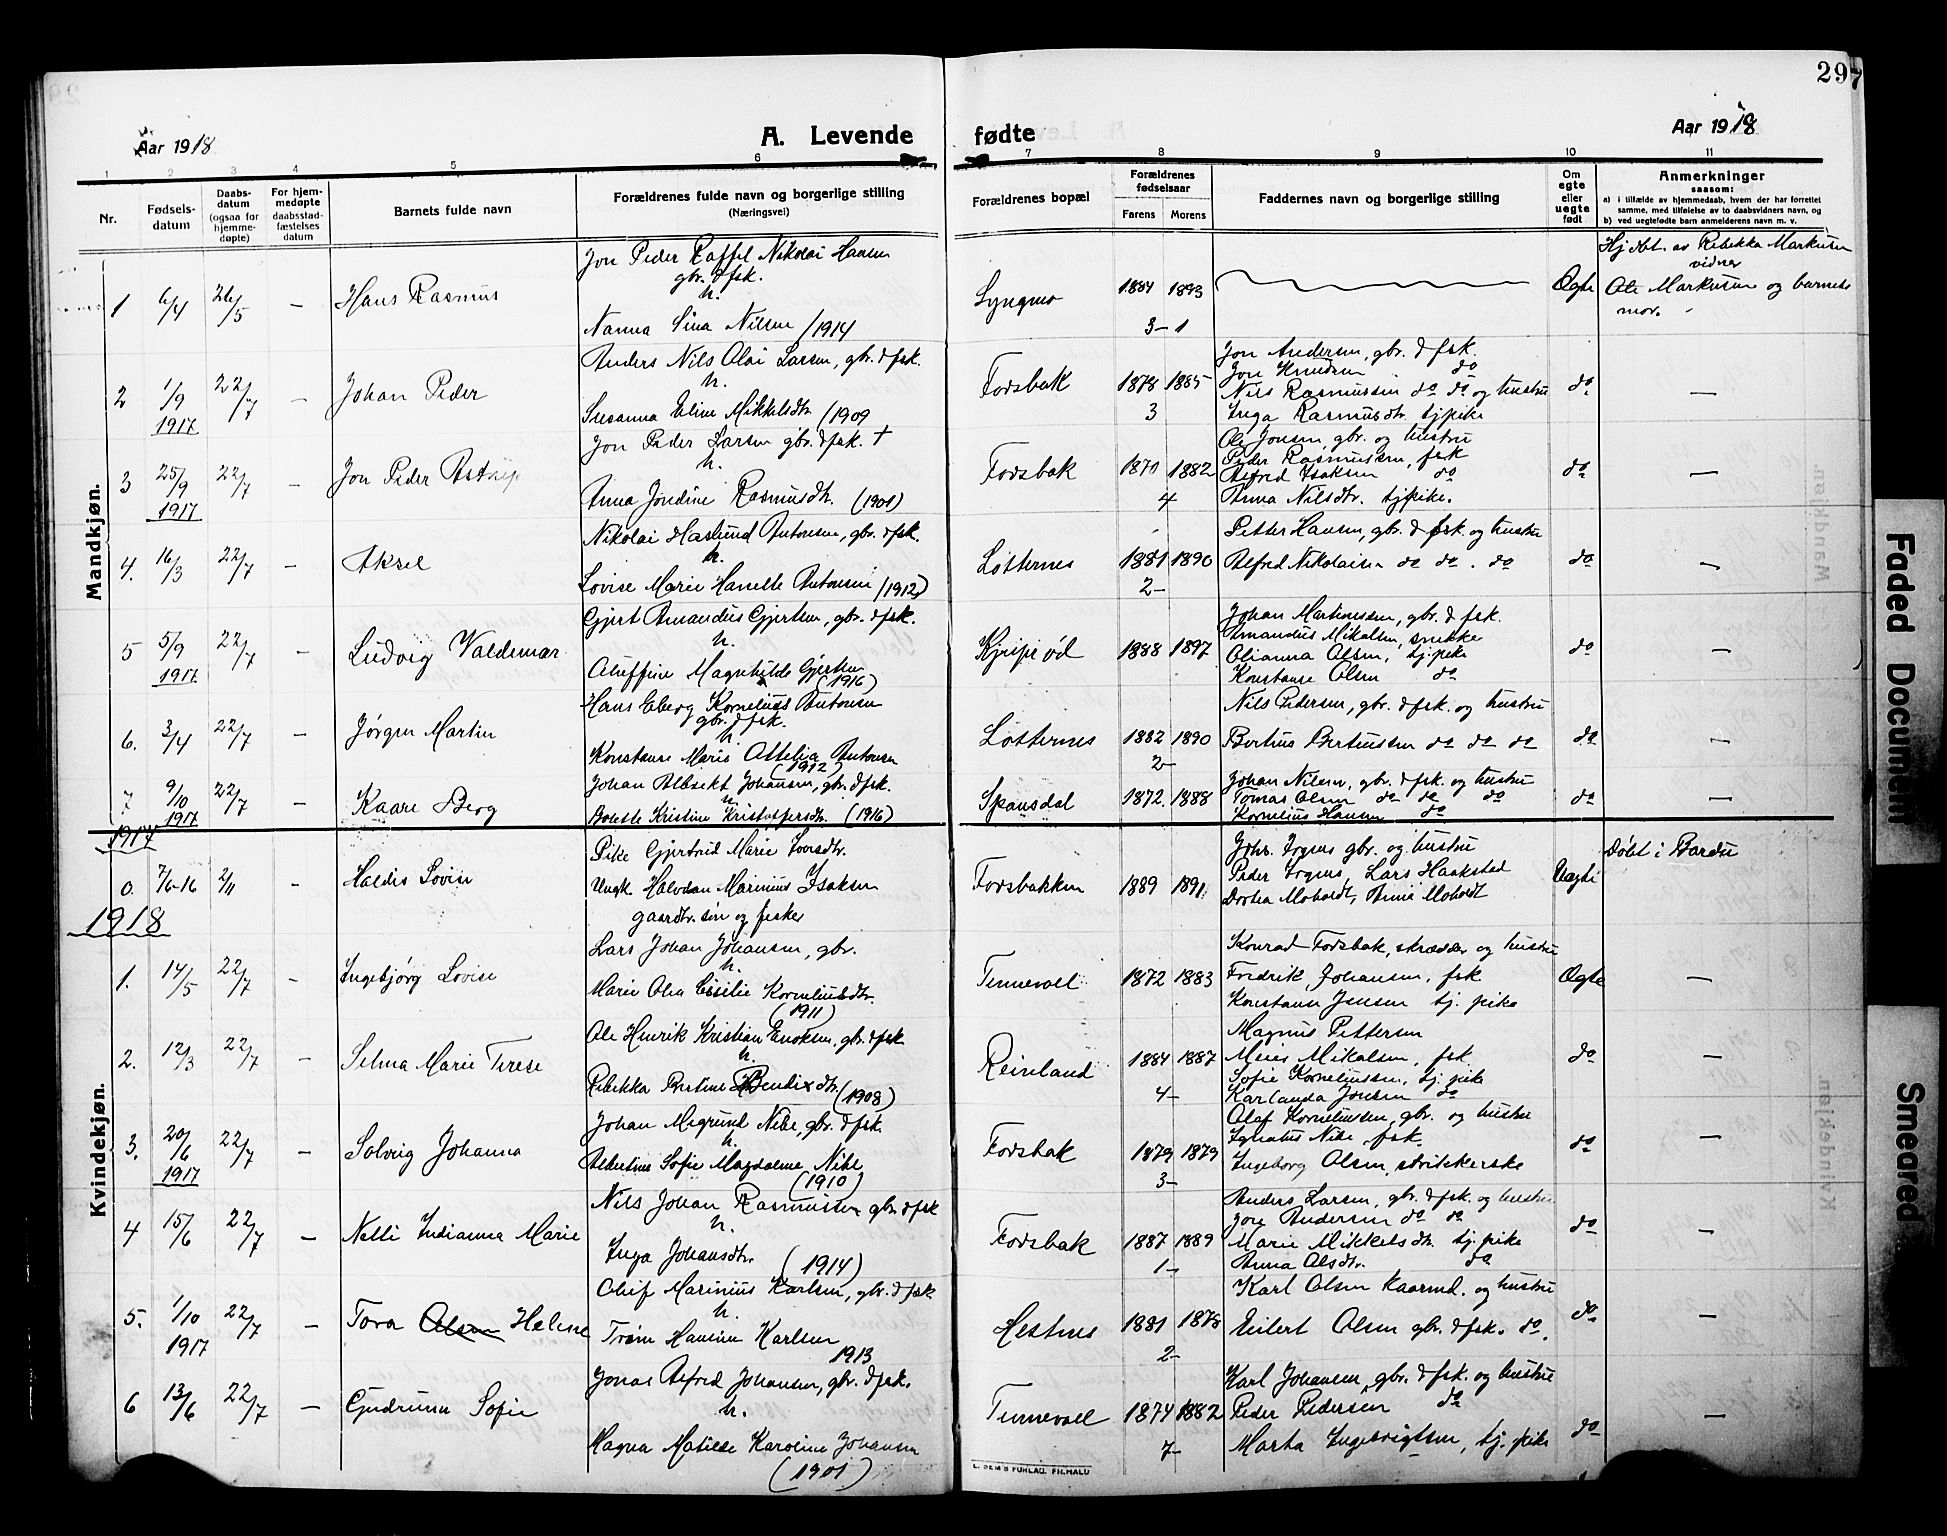 297
Aar 1918
A. Levende
fødte
Aar 1918
1 2 3 4 5 6 7 8 9 10 11
Nr.
Fødsels-
datum
Daabs-
datum
(ogsaa for
hjemme-
døpte)
For hjem-
medøpte
daabsstad-
fæstelses
datum
Barnets fulde navn
Forældrenes fulde navn og borgerlige stilling
(Næringsvei)
Forældrenes bopæl
Forældrenes
fødselsaar
Farens Morens
Faddernes navn og borgerlige stilling
Om
egte
eller
uegte
født
Anmerkninger
saasom:
a) i tilfælde av hjemmedaab, hvem der har forrettet
samme, med tilføielse av to daabsvidners navn, og
b) ved uegtefødte barn anmelderens navn m. v.
Mandkjøn.
1 6/4 26/5 – Hans Rasmus
Jon Peder Raffel Nikolai Hansen
gbr. & fsk.
h.
Nanna Sina Nilsen (1914
Lyngmo 1884 1893
3 – 1
Ægte
Hj.døbt. av Rebekka Markusen
vidner
Ole Markusen og barnets
mor.
2 1/9 1917 22/7 – Johan Peder
Anders Nils Olai Larsen, gbr. & fsk.
h.
Susanna Eline Mikkelsdtr. (1909
Forsbak 1878 1885
3
Jon Andersen, gbr. & fsk.
Jon Knudsen do
Nils Rasmussen do do og hustru
Inga Rasmusdtr. tj.pike
do –
3 25/9 1917 22/7 – Jon Peder Astrup
Jon Peder Larsen gbr. & fsk. †
h.
Anna Jondine Rasmusdtr. (1901)
Forsbak 1870 1882
4
Ole Jonsen gbr. og hustru
Peder Rasmussen, fsk
Alfred Isaksen do
Anna Nilsdtr. tj.pike.
do –
4. 16/3 22/7 – Aksel
Nikolai Haslund Antonsen, gbr. & fsk.
h.
Lovise Marie Hanelle Antonsen (1912)
Løtternes 1881 1890
2 –
Petter Hansen, gbr. & fsk. og hustru
Alfred Nikolaisen do do . do
do –
5 5/9 1917 22/7 – Ludvig Valdemar
Gjert Amandus Gjertsen, gbr. & fsk.
h.
Oluffine Magnhilde Gjertsen
(1916)
1888 1897
Johan Martinussen, gbr. & fsk.
Amandus Mikalsen, snekke
Olianna Olsen, tj.pike
Konstanse Olsen do
do –
6. 3/4 22/7 – Jørgen Martin
Hans Eberg Kornelius Antonsen
gbr. & fsk.
h.
Konstanse Marie Attelia Antonsen
(1912)
Løtternes 1882 1890
2 –
Nils Pedersen, gbr. & fsk. og hustru
Bertius Bertiussen do do do
do –
7 9/10 1917 22/7 – Kaare Berg
Johan Albrekt Johansen, gbr. & fsk.
h.
Bolette Kristine Kristoffersdtr. (1916)
Spansdal 1872 1888
Johan Nilsen, gbr. & fsk. og hustru
Tomas Olsen do do do
Kornelius Hansen do
do –
1917
0. 7/6-16 2/11 – Haldis Lovise
Pike Gjertrud Marie Larsdtr.
Ungk. Halvdan Marinius Isaksen
gaardbr. søn og fisker
Forsbakken 1889 1891
Johs. Irgens gbr. og hustru
Peder Irgens, Lars Haakstad
Dortea Moholdt, Anna Moholdt
Uægte
Døbt i Bardu
1918
Kvindekjøn.
1. 14/5 22/7 – Ingebjørg Lovise
Lars Johan Johansen, gbr.
h.
Marie Olea Cesilie Korneliusdtr.
(1911)
Tennevoll 1872 1883
Konrad Forsbak, skrædder og hustru
Fredrik Johansen, fsk
Konstanse Jensen tj. pike
Ægte –
2. 12/3 22/7 – Selma Marie Terese
Ole Henrik Kristian Enoksen, gbr. & fsk
h.
Rebekka Bertine Bendixdtr. (1908)
Reinland 1884 1887
4 –
Magnus Pettersen
Meier Mikalsen, fsk
Sofie Korneliussen, tj. pike
Karlanda Jonsen do
do –
3. 20/6 1917 22/7 – Solveig Johanna
Johan Megrund Nibe, gbr. & fsk.
h.
Albertine Sofie Magdalene Nibe
(1910)
Forsbak 1879 1879
3 –
Olaf Korneliussen, gbr. og hustru
Ignatus Nibe, fsk.
Ingeborg Olsen, strikkerske
do –
4 15/6 22/7 – Nelli Indianna Marie
Nils Johan Rasmussen gbr. & fsk
h.
Inga Johansdtr. (1914)
Forsbak 1887 1889
1 –
Anders Larsen, gbr. & fsk. og hustru
Jon Andersen do do
Marie Mikkelsdtr. tj. pike
Anna Olsdtr. do
do –
5. 1/10 1917 22/7 – Tora Olsen Helene
Oluf Marinius Karlsen, gbr. & fsk.
h.
Trøin Hansine Karlsen
1913
Hestnes 1881 1878
2 –
Karl Olsen Kaarmd. og hustru
Eilert Olsen gbr. & fsk. do.
do –
6 13/6 22/7 – Gudrunn Sofie
Jonas Alfred Johansen, gbr. & fsk.
h.
Magna Matilde Karoline Johansen
(1901)
Tennevoll 1874 1882
7 –
Karl Johansen, gbr. & fsk. og hustru
Peder Pedersen do
Marta Ingebrigtsen, tj. pike
do –
E. SEM'S FORLAG, FR.HALD
Faded Document
Smeared